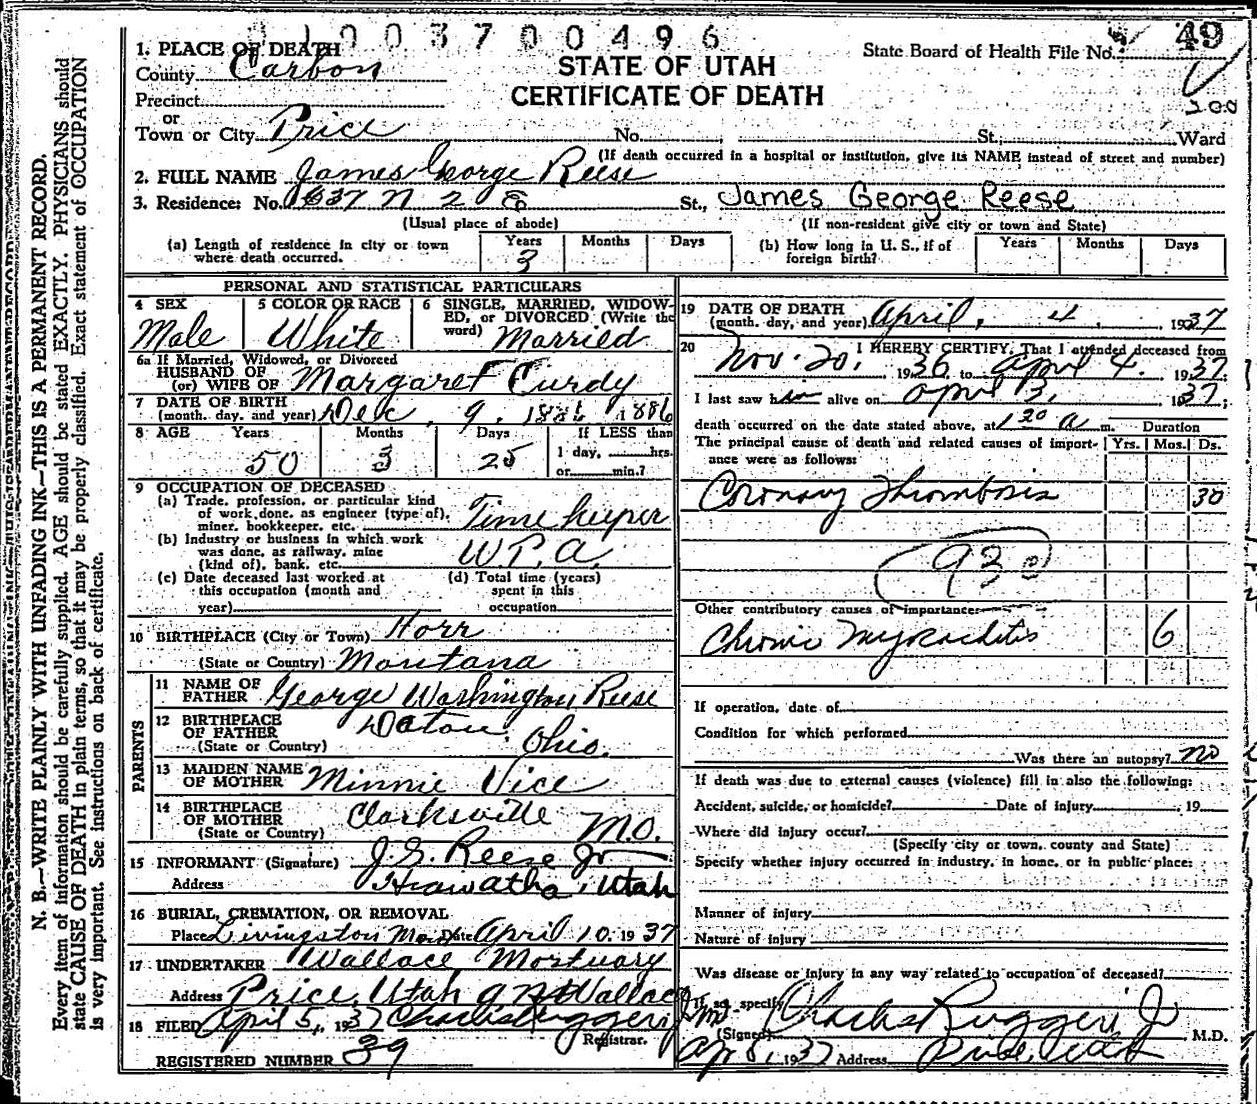 N. B.—WRITE PLAINLY WITH UNFADING INK—THIS IS A PERMANENT RECORD.
Every item of information should be carefully supplied. AGE should be stated EXACTLY. PHYSICIANS should
state CAUSE OF DEATH in plain terms, so that it may be properly classified. Exact statement of OCCUPATION
is very important. See instructions on back of certificate.
003700496
1. PLACE OF DEATH
County Carbon
Precinct
or
Town or City Price No. St. Ward
(If death occurred in a hospital or institution, give its NAME instead of street and number)
STATE OF UTAH
CERTIFICATE OF DEATH
State Board of Health File No. 49
200
2. FULL NAME James George Reese
3. Residence: No. 637 N 2 E St., James George Reese
(Usual place of abode) (If non-resident give city or town and State)
(a) Length of residence in city or town where death occurred. Years 3 Months Days
(b) How long in U. S., if of foreign birth? Years Months Days
PERSONAL AND STATISTICAL PARTICULARS
4 SEX Male
5 COLOR OR RACE White
6 SINGLE, MARRIED, WIDOWED, or DIVORCED (Write the word) Married
6a If Married, Widowed, or Divorced
HUSBAND OF
(or) WIFE OF Margaret Curdy
7 DATE OF BIRTH
(month, day, and year) Dec. 9. 1886 1886
8 AGE Years 50 Months 3 Days 25 If LESS than
1 day, hrs.
or min.?
9 OCCUPATION OF DECEASED
(a) Trade, profession, or particular kind
of work done, as engineer (type of),
miner, bookkeeper, etc. Time keeper
(b) Industry or business in which work
was done, as railway, mine
(kind of), bank, etc. W.P.A.
(c) Date deceased last worked at
this occupation (month and
year)
(d) Total time (years)
spent in this
occupation
10 BIRTHPLACE (City or Town) Horr
(State or Country) Montana
PARENTS
11 NAME OF
FATHER George Washington Reese
12 BIRTHPLACE
OF FATHER
(State or Country) Ohio.
13 MAIDEN NAME
OF MOTHER Minnie Vice
14 BIRTHPLACE
OF MOTHER
(State or Country) Clarksville Mo.
15 INFORMANT (Signature) J. G. Reese Jr
Address Hiawatha, Utah
16 BURIAL, CREMATION, OR REMOVAL
Place Livingston Mont Date April 10. 1937
17 UNDERTAKER Wallace Mortuary
Address Price, Utah Wallace
18 FILED April 5, 1937 Charles Ruggeri Jr
Registrar.
REGISTERED NUMBER 39
19 DATE OF DEATH
(month, day, and year) April, 4, 1937
20 I HEREBY CERTIFY, That I attended deceased from
Nov. 20, 1936, to April 4, 1937.
I last saw him alive on April 3, 1937;
death occurred on the date stated above, at 1 20 a m. Duration
The principal cause of death and related causes of importance were as follows: Yrs. Mos. Ds.
Coronary Thrombosis 30
93
Other contributory causes of importance:
Chronic Myocarditis 6
If operation, date of
Condition for which performed
Was there an autopsy? no
If death was due to external causes (violence) fill in also the following:
Accident, suicide, or homicide? Date of injury , 19
Where did injury occur?
(Specify city or town, county and State)
Specify whether injury occurred in industry, in home, or in public place:
Manner of injury
Nature of injury
Was disease or injury in any way related to occupation of deceased?
If so, specify
(Signed) Charles Ruggeri Jr M.D.
Apr 5, 1937 Address Price, Utah